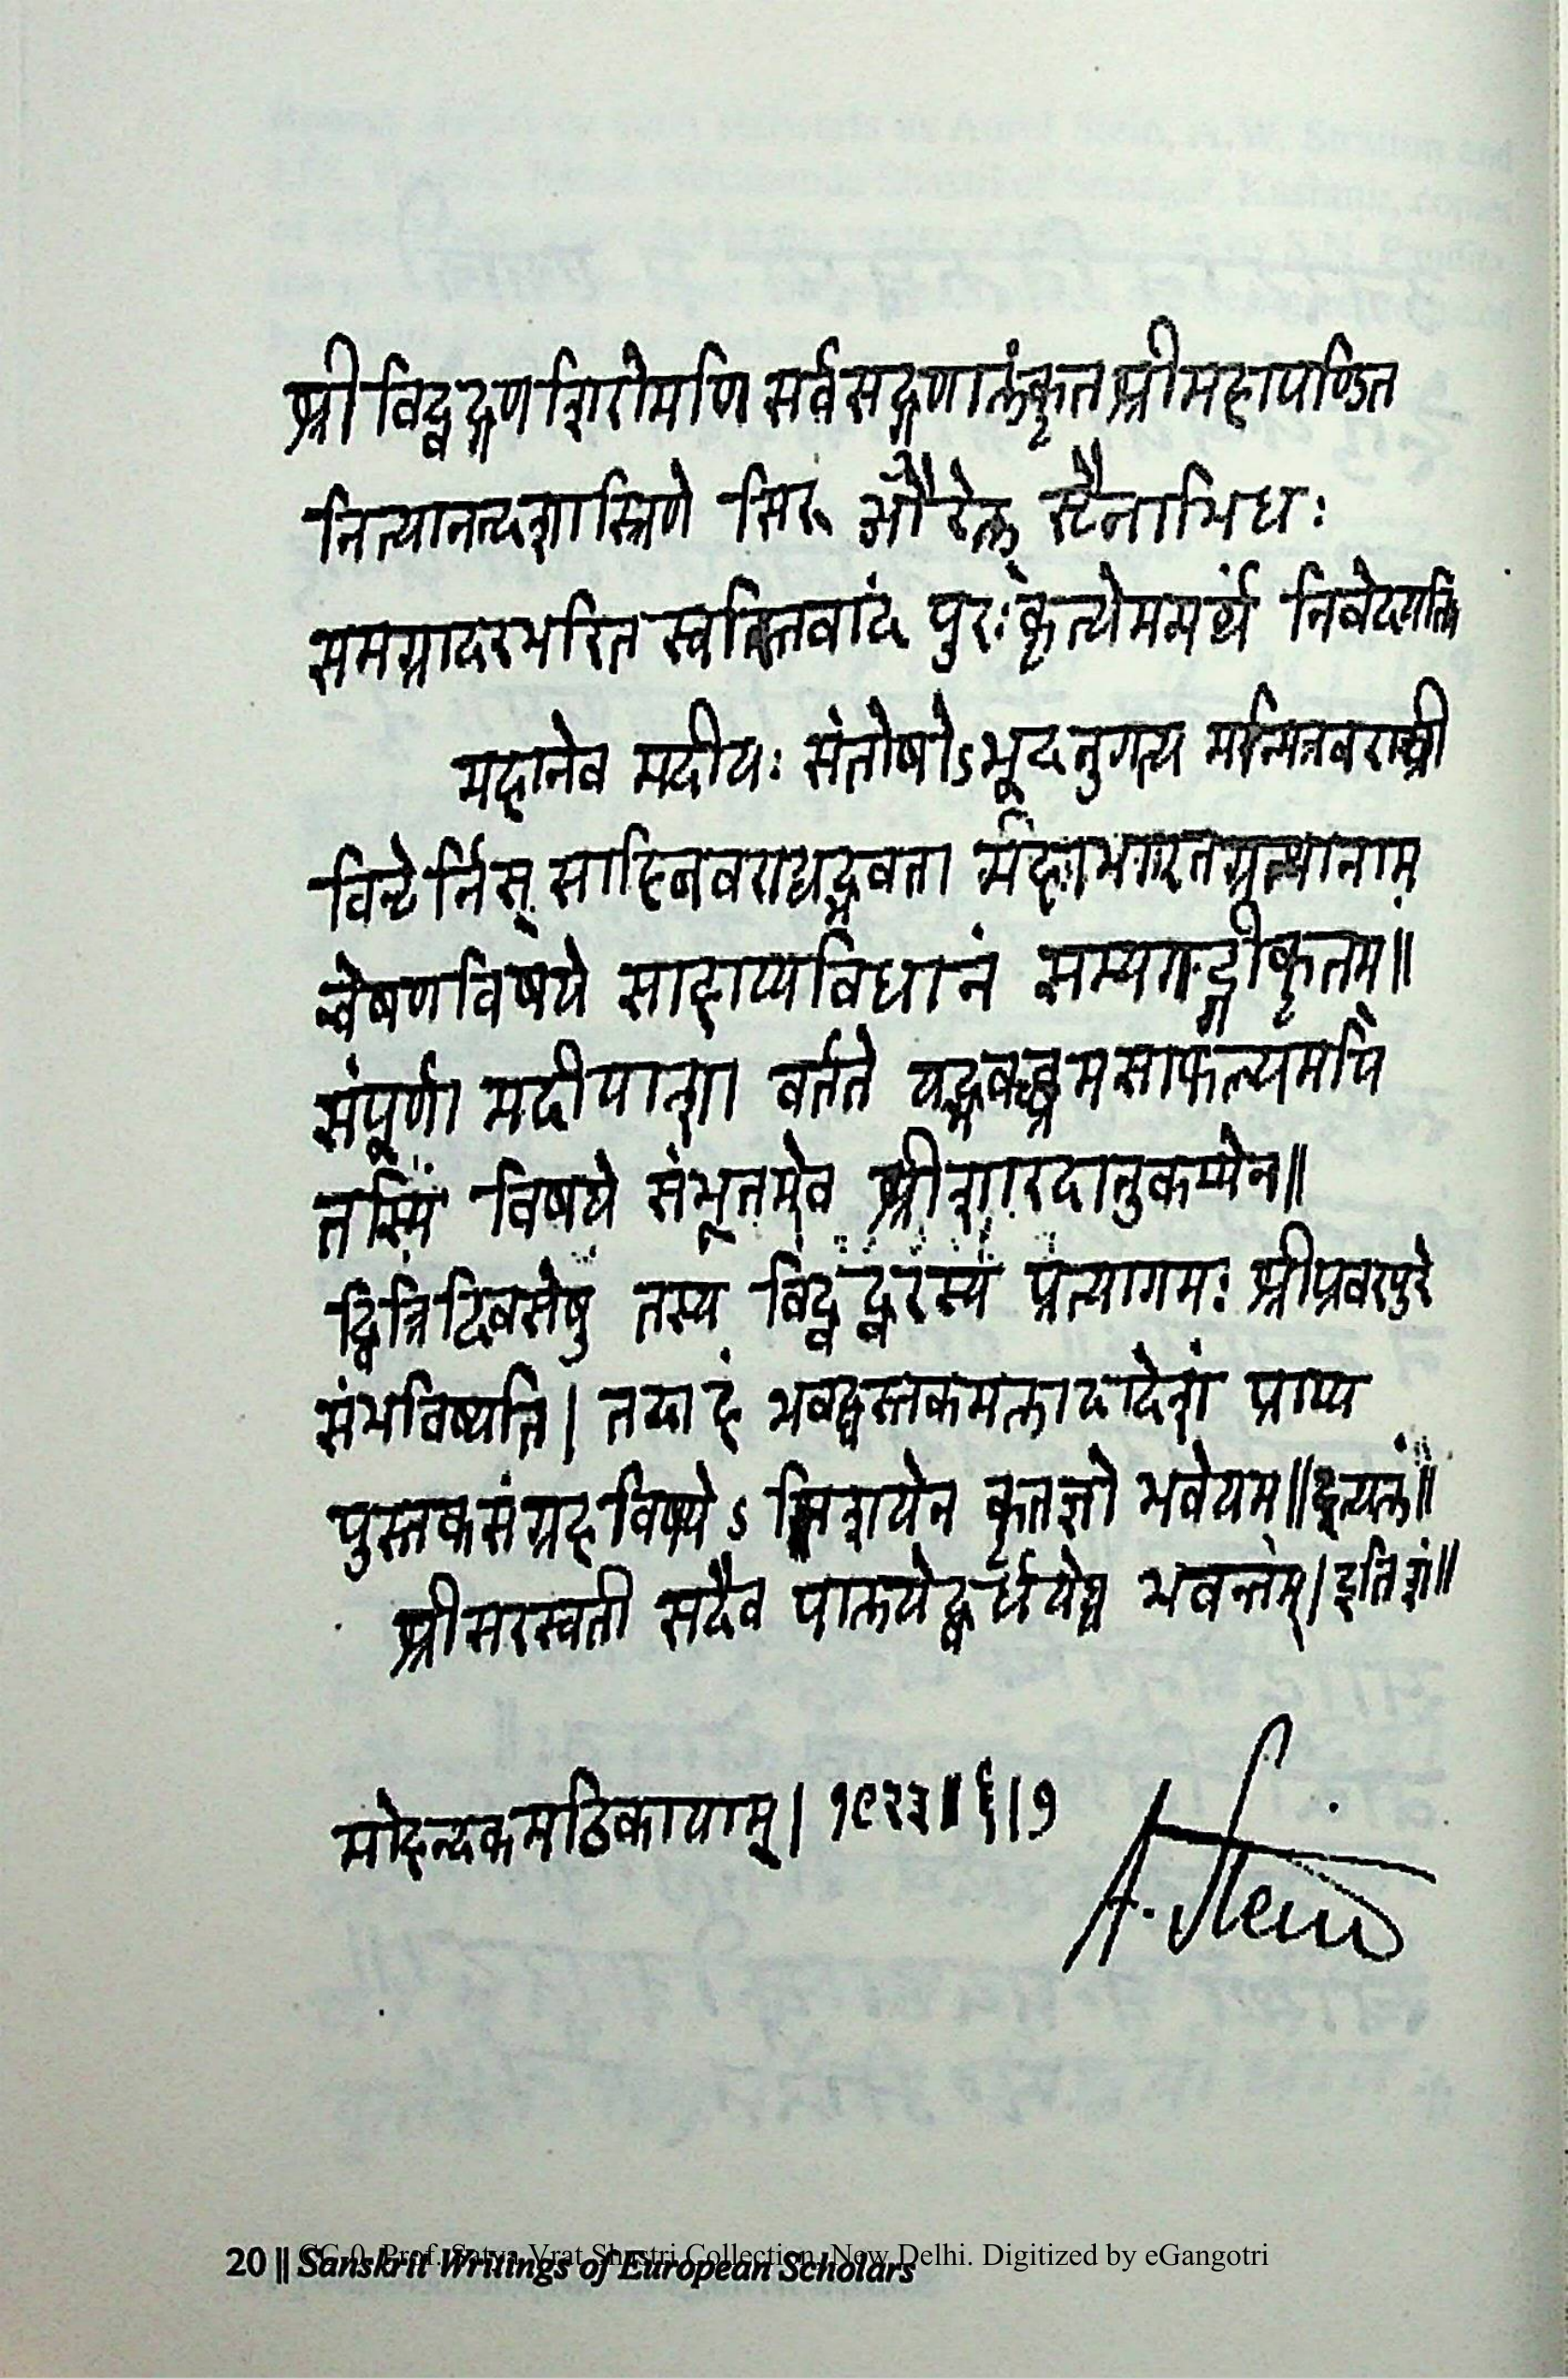 श्रीविद्वद्गणशिरोमणि सर्वसद्गुणालंकृत श्रीमहापण्डित
नित्यानन्दशास्त्रिणे औरेल् स्टैनाभिधः
समग्रादरभरित स्वस्तिवादं पुरःकृत्येममर्थं निवेदयति
महानेव मदीयः संतोषोऽभूदनुगत्य
विन्टेर्निस् साहिबवराद्यद्भवता महाभारतग्रन्थानाम
न्वेषणविषये साहाय्यविधानं सम्यगङ्गीकृतम्॥
संपूर्णा मदीयाशा वर्तते
विषये संभूतमेव श्रीशारदानुकम्पेन॥
द्वित्रिदिवसेषु तस्य विद्वद्वरस्य प्रत्यागमः श्रीप्रवरपुरे
संभविष्यति। तदाहं भवद्धस्तकमलादादेशं प्राप्य
पुस्तकसंग्रहविषयेऽतिशयेन कृतज्ञो भवेयम्॥इत्यलं॥
श्रीसरस्वती सदैव पालयेद्वर्धयेच्च भवन्तम्। इति शं॥
मोहन्दकमठिकायाम्। १९२३॥६।७
A. Stein
20 || Sanskrit Writings of European Scholars
CC-0. Prof. Satya Vrat Shastri Collection, New Delhi. Digitized by eGangotri